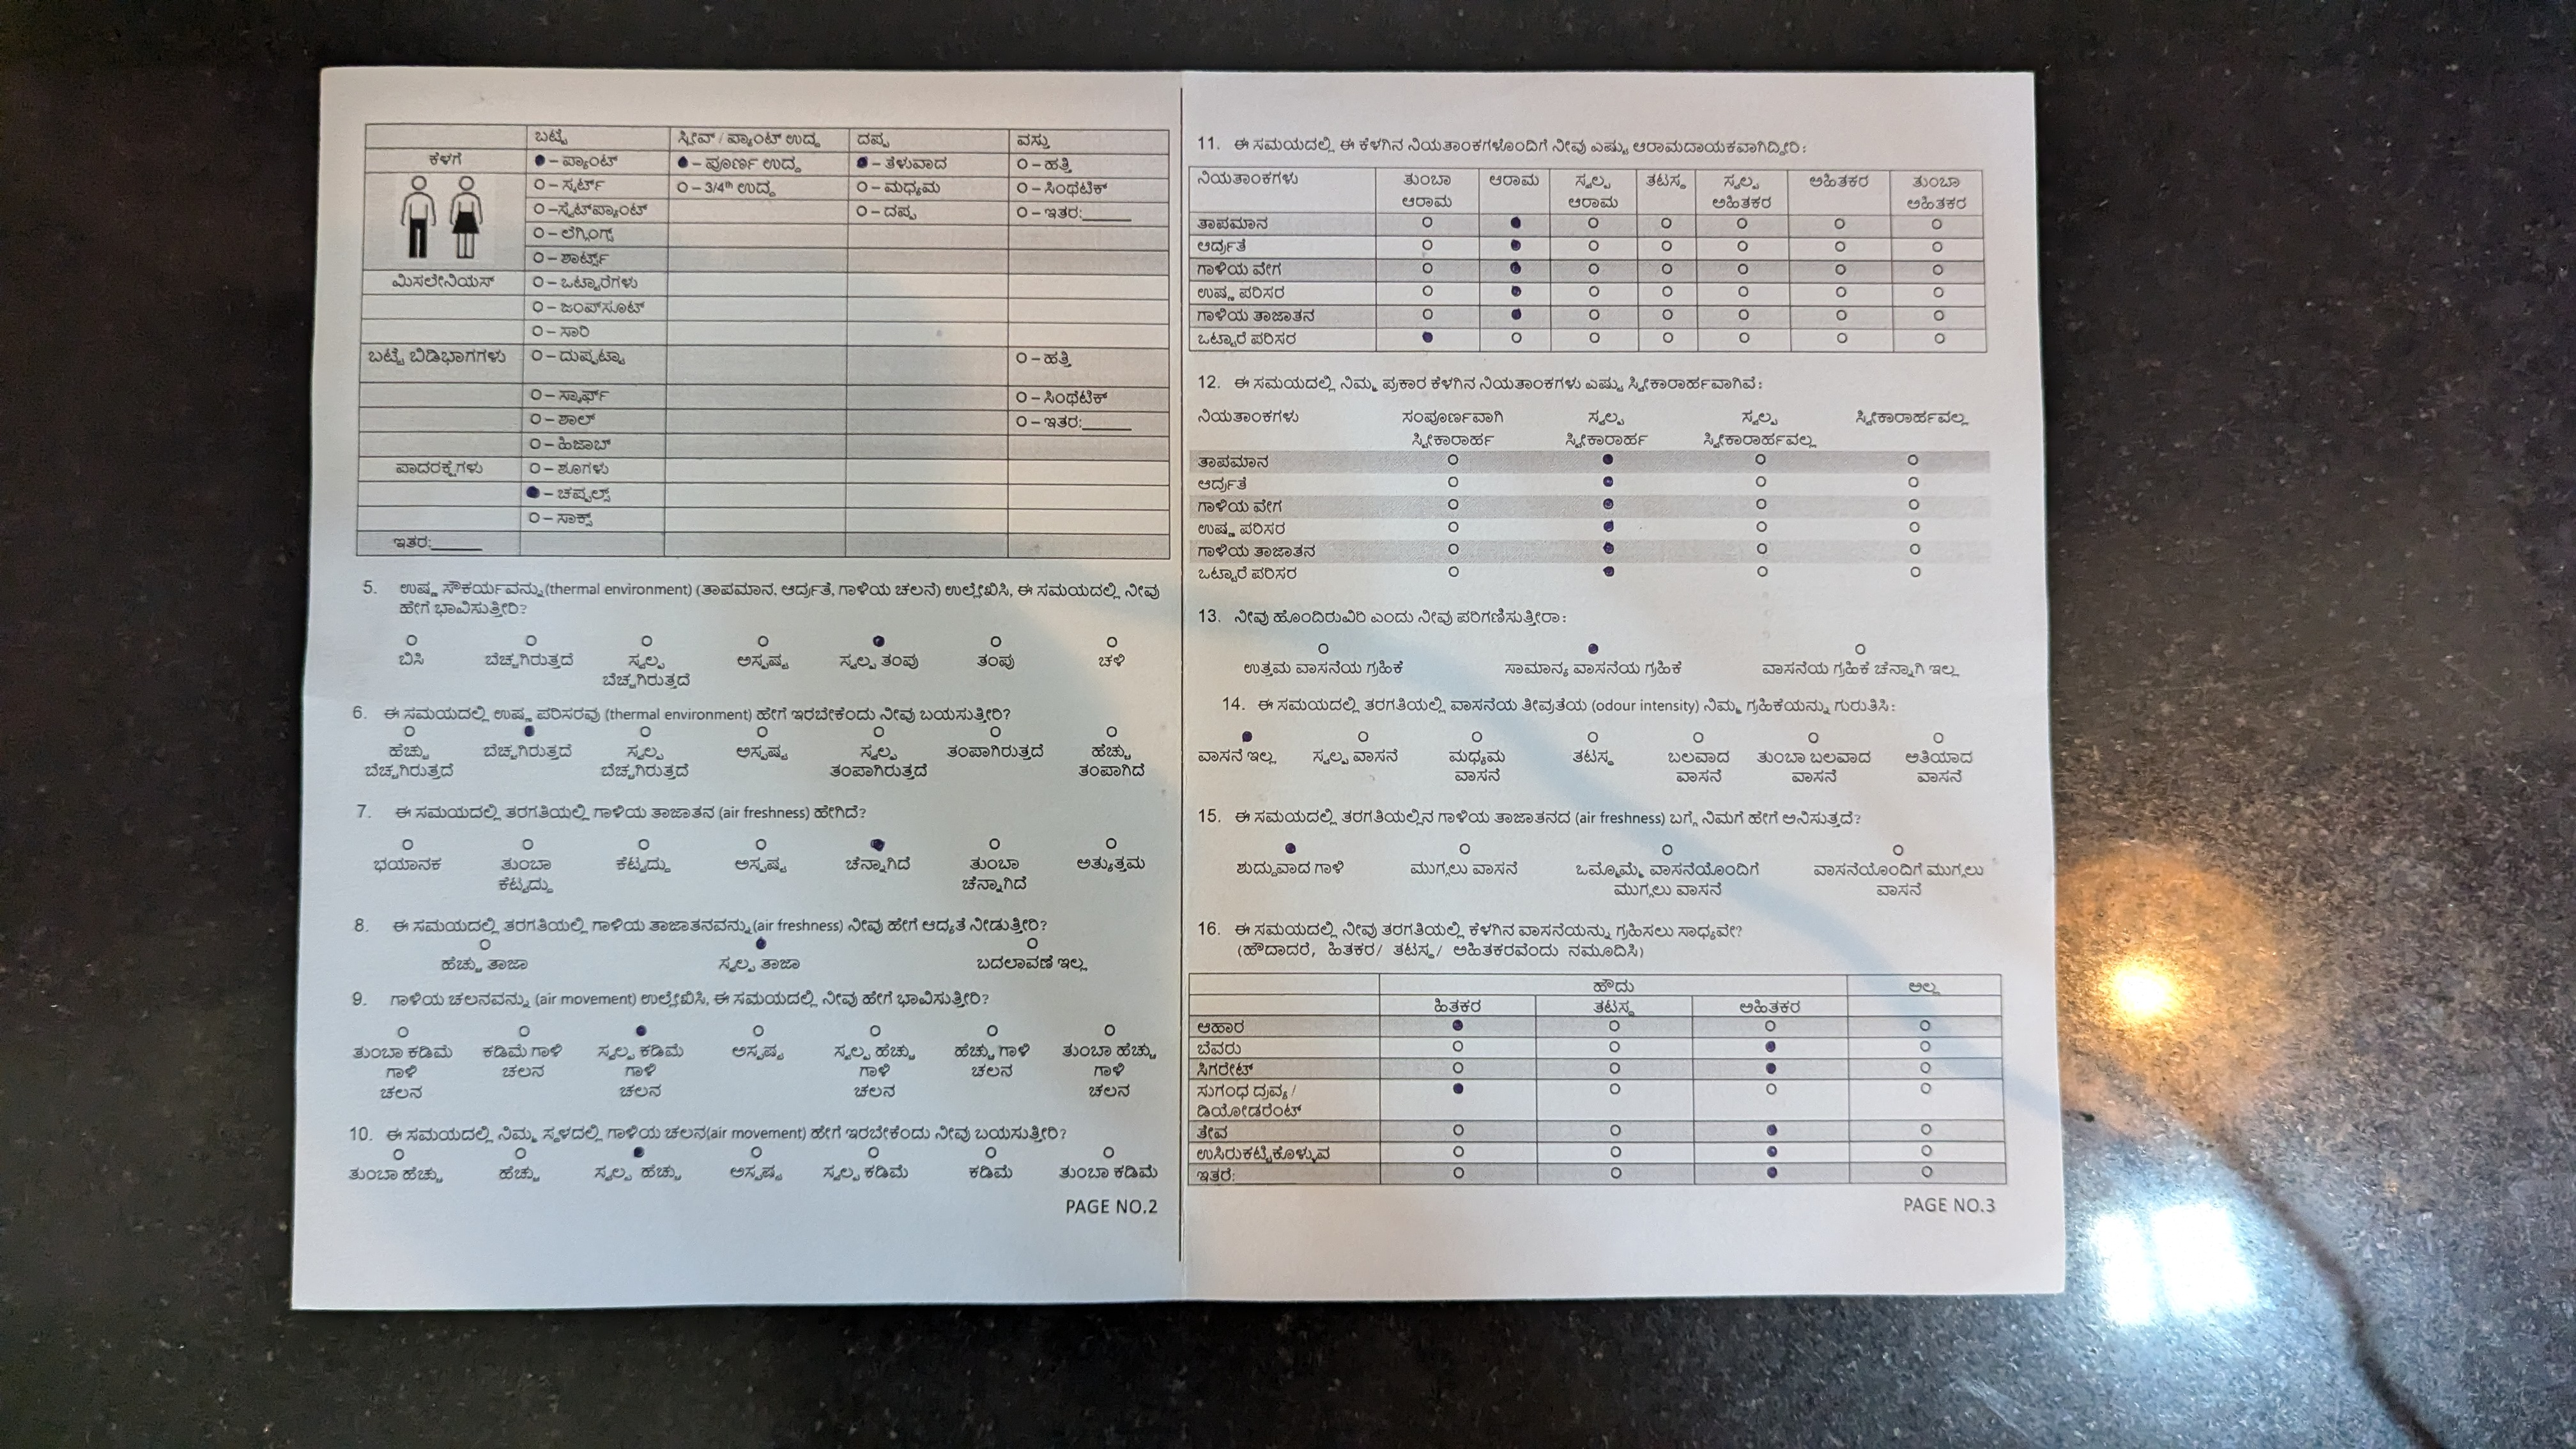 ಬಟ್ಟೆ ಸ್ಲೀವ್ / ಪ್ಯಾಂಟ್ ಉದ್ದ ದಪ್ಪ ವಸ್ತು
ಕೆಳಗೆ ●– ಪ್ಯಾಂಟ್ ●– ಪೂರ್ಣ ಉದ್ದ ●– ತೆಳುವಾದ O – ಹತ್ತಿ
O – ಸ್ಕರ್ಟ್ O – 3/4th ಉದ್ದ O – ಮಧ್ಯಮ O – ಸಿಂಥೆಟಿಕ್
O –ಸ್ವೆಟ್‌ಪ್ಯಾಂಟ್ O – ದಪ್ಪ O – ಇತರ:______
O – ಲೆಗ್ಗಿಂಗ್ಸ್
O – ಶಾರ್ಟ್ಸ್
ಮಿಸಲೇನಿಯಸ್ O – ಒಟ್ಟಾರೆಗಳು
O – ಜಂಪ್‌ಸೂಟ್
O – ಸಾರಿ
ಬಟ್ಟೆ ಬಿಡಿಭಾಗಗಳು O – ದುಪ್ಪಟ್ಟಾ O – ಹತ್ತಿ
O – ಸ್ಕಾರ್ಫ್ O – ಸಿಂಥೆಟಿಕ್
O – ಶಾಲ್ O – ಇತರ:______
O – ಹಿಜಾಬ್
ಪಾದರಕ್ಷೆಗಳು O – ಶೂಗಳು
●– ಚಪ್ಪಲ್ಸ್
O – ಸಾಕ್ಸ್
ಇತರ:______
5. ಉಷ್ಣ ಸೌಕರ್ಯವನ್ನು (thermal environment) (ತಾಪಮಾನ, ಆರ್ದ್ರತೆ, ಗಾಳಿಯ ಚಲನೆ) ಉಲ್ಲೇಖಿಸಿ, ಈ ಸಮಯದಲ್ಲಿ ನೀವು
ಹೇಗೆ ಭಾವಿಸುತ್ತೀರಿ?
ಬಿಸಿ ಬೆಚ್ಚಗಿರುತ್ತದೆ ಸ್ವಲ್ಪ ಅಸ್ಪಷ್ಟ ಸ್ವಲ್ಪ ತಂಪು ತಂಪು ಚಳಿ
ಬೆಚ್ಚಗಿರುತ್ತದೆ
6. ಈ ಸಮಯದಲ್ಲಿ ಉಷ್ಣ ಪರಿಸರವು (thermal environment) ಹೇಗೆ ಇರಬೇಕೆಂದು ನೀವು ಬಯಸುತ್ತೀರಿ?
ಹೆಚ್ಚು ಬೆಚ್ಚಗಿರುತ್ತದೆ ಸ್ವಲ್ಪ ಅಸ್ಪಷ್ಟ ಸ್ವಲ್ಪ ತಂಪಾಗಿರುತ್ತದೆ ಹೆಚ್ಚು
ಬೆಚ್ಚಗಿರುತ್ತದೆ ಬೆಚ್ಚಗಿರುತ್ತದೆ ತಂಪಾಗಿರುತ್ತದೆ ತಂಪಾಗಿದೆ
7. ಈ ಸಮಯದಲ್ಲಿ ತರಗತಿಯಲ್ಲಿ ಗಾಳಿಯ ತಾಜಾತನ (air freshness) ಹೇಗಿದೆ?
ಭಯಾನಕ ತುಂಬಾ ಕೆಟ್ಟದ್ದು ಅಸ್ಪಷ್ಟ ಚೆನ್ನಾಗಿದೆ ತುಂಬಾ ಅತ್ಯುತ್ತಮ
ಕೆಟ್ಟದ್ದು ಚೆನ್ನಾಗಿದೆ
8. ಈ ಸಮಯದಲ್ಲಿ ತರಗತಿಯಲ್ಲಿ ಗಾಳಿಯ ತಾಜಾತನವನ್ನು (air freshness) ನೀವು ಹೇಗೆ ಆದ್ಯತೆ ನೀಡುತ್ತೀರಿ?
ಹೆಚ್ಚು ತಾಜಾ ಸ್ವಲ್ಪ ತಾಜಾ ಬದಲಾವಣೆ ಇಲ್ಲ
9. ಗಾಳಿಯ ಚಲನವನ್ನು (air movement) ಉಲ್ಲೇಖಿಸಿ, ಈ ಸಮಯದಲ್ಲಿ ನೀವು ಹೇಗೆ ಭಾವಿಸುತ್ತೀರಿ?
ತುಂಬಾ ಕಡಿಮೆ ಕಡಿಮೆ ಗಾಳಿ ಸ್ವಲ್ಪ ಕಡಿಮೆ ಅಸ್ಪಷ್ಟ ಸ್ವಲ್ಪ ಹೆಚ್ಚು ಹೆಚ್ಚು ಗಾಳಿ ತುಂಬಾ ಹೆಚ್ಚು
ಗಾಳಿ ಚಲನ ಗಾಳಿ ಗಾಳಿ ಚಲನ ಗಾಳಿ
ಚಲನ ಚಲನ ಚಲನ ಚಲನ
10. ಈ ಸಮಯದಲ್ಲಿ ನಿಮ್ಮ ಸ್ಥಳದಲ್ಲಿ ಗಾಳಿಯ ಚಲನ(air movement) ಹೇಗೆ ಇರಬೇಕೆಂದು ನೀವು ಬಯಸುತ್ತೀರಿ?
ತುಂಬಾ ಹೆಚ್ಚು ಹೆಚ್ಚು ಸ್ವಲ್ಪ ಹೆಚ್ಚು ಅಸ್ಪಷ್ಟ ಸ್ವಲ್ಪ ಕಡಿಮೆ ಕಡಿಮೆ ತುಂಬಾ ಕಡಿಮೆ
PAGE NO.2
11. ಈ ಸಮಯದಲ್ಲಿ ಈ ಕೆಳಗಿನ ನಿಯತಾಂಕಗಳೊಂದಿಗೆ ನೀವು ಎಷ್ಟು ಆರಾಮದಾಯಕವಾಗಿದ್ದೀರಿ:
ನಿಯತಾಂಕಗಳು ತುಂಬಾ ಆರಾಮ ಸ್ವಲ್ಪ ತಟಸ್ಥ ಸ್ವಲ್ಪ ಅಹಿತಕರ ತುಂಬಾ
ಆರಾಮ ಆರಾಮ ಅಹಿತಕರ ಅಹಿತಕರ
ತಾಪಮಾನ
ಆರ್ದ್ರತೆ
ಗಾಳಿಯ ವೇಗ
ಉಷ್ಣ ಪರಿಸರ
ಗಾಳಿಯ ತಾಜಾತನ
ಒಟ್ಟಾರೆ ಪರಿಸರ
12. ಈ ಸಮಯದಲ್ಲಿ ನಿಮ್ಮ ಪ್ರಕಾರ ಕೆಳಗಿನ ನಿಯತಾಂಕಗಳು ಎಷ್ಟು ಸ್ವೀಕಾರಾರ್ಹವಾಗಿವೆ:
ನಿಯತಾಂಕಗಳು ಸಂಪೂರ್ಣವಾಗಿ ಸ್ವಲ್ಪ ಸ್ವಲ್ಪ ಸ್ವೀಕಾರಾರ್ಹವಲ್ಲ
ಸ್ವೀಕಾರಾರ್ಹ ಸ್ವೀಕಾರಾರ್ಹ ಸ್ವೀಕಾರಾರ್ಹವಲ್ಲ
ತಾಪಮಾನ
ಆರ್ದ್ರತೆ
ಗಾಳಿಯ ವೇಗ
ಉಷ್ಣ ಪರಿಸರ
ಗಾಳಿಯ ತಾಜಾತನ
ಒಟ್ಟಾರೆ ಪರಿಸರ
13. ನೀವು ಹೊಂದಿರುವಿರಿ ಎಂದು ನೀವು ಪರಿಗಣಿಸುತ್ತೀರಾ:
ಉತ್ತಮ ವಾಸನೆಯ ಗ್ರಹಿಕೆ ಸಾಮಾನ್ಯ ವಾಸನೆಯ ಗ್ರಹಿಕೆ ವಾಸನೆಯ ಗ್ರಹಿಕೆ ಚೆನ್ನಾಗಿ ಇಲ್ಲ
14. ಈ ಸಮಯದಲ್ಲಿ ತರಗತಿಯಲ್ಲಿ ವಾಸನೆಯ ತೀವ್ರತೆಯ (odour intensity) ನಿಮ್ಮ ಗ್ರಹಿಕೆಯನ್ನು ಗುರುತಿಸಿ:
ವಾಸನೆ ಇಲ್ಲ ಸ್ವಲ್ಪ ವಾಸನೆ ಮಧ್ಯಮ ತಟಸ್ಥ ಬಲವಾದ ತುಂಬಾ ಬಲವಾದ ಅತಿಯಾದ
ವಾಸನೆ ವಾಸನೆ ವಾಸನೆ ವಾಸನೆ
15. ಈ ಸಮಯದಲ್ಲಿ ತರಗತಿಯಲ್ಲಿನ ಗಾಳಿಯ ತಾಜಾತನದ (air freshness) ಬಗ್ಗೆ ನಿಮಗೆ ಹೇಗೆ ಅನಿಸುತ್ತದೆ?
ಶುದ್ಧುವಾದ ಗಾಳಿ ಮುಗ್ಗಲು ವಾಸನೆ ಒಮ್ಮೊಮ್ಮೆ ವಾಸನೆಯೊಂದಿಗೆ ವಾಸನೆಯೊಂದಿಗೆ ಮುಗ್ಗಲು
ಮುಗ್ಗಲು ವಾಸನೆ ವಾಸನೆ
16. ಈ ಸಮಯದಲ್ಲಿ ನೀವು ತರಗತಿಯಲ್ಲಿ ಕೆಳಗಿನ ವಾಸನೆಯನ್ನು ಗ್ರಹಿಸಲು ಸಾಧ್ಯವೇ?
(ಹೌದಾದರೆ, ಹಿತಕರ/ ತಟಸ್ಥ/ ಅಹಿತಕರವೆಂದು ನಮೂದಿಸಿ)
ಹೌದು ಅಲ್ಲ
ಹಿತಕರ ತಟಸ್ಥ ಅಹಿತಕರ
ಆಹಾರ
ಬೆವರು
ಸಿಗರೇಟ್
ಸುಗಂಧ ದ್ರವ್ಯ /
ಡಿಯೋಡರೆಂಟ್
ತೇವ
ಉಸಿರುಕಟ್ಟಿಕೊಳ್ಳುವ
ಇತರೆ:
PAGE NO.3